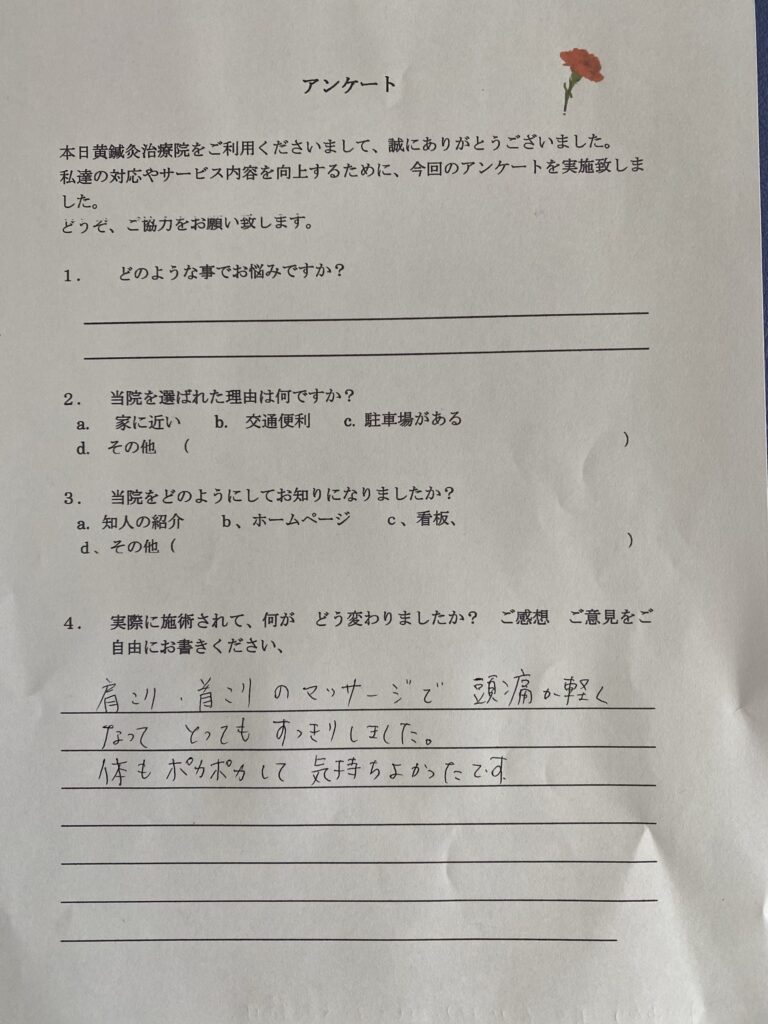 アンケート
本日黄鍼灸治療院をご利用くださいまして、誠にありがとうございました。
私達の対応やサービス内容を向上するために、今回のアンケートを実施致しま
した。
どうぞ、ご協力をお願い致します。
１．　どのような事でお悩みですか？
２．　当院を選ばれた理由は何ですか？
a.　家に近い　　b.　交通便利　　c. 駐車場がある
d.　その他　（　　　　　　　　　　　　　　　　　　　　　　　　　　）
３．　当院をどのようにしてお知りになりましたか？
a. 知人の紹介　　ｂ、ホームページ　　ｃ、看板、
ｄ、その他（　　　　　　　　　　　　　　　　　　　　　　　　　　　）
４．　実際に施術されて、何が　どう変わりましたか？　ご感想　ご意見をご
自由にお書きください、
肩こり・首こりのマッサージで　頭痛が軽く
なって　とっても　すっきりしました。
体もポカポカして　気持ちよかったです